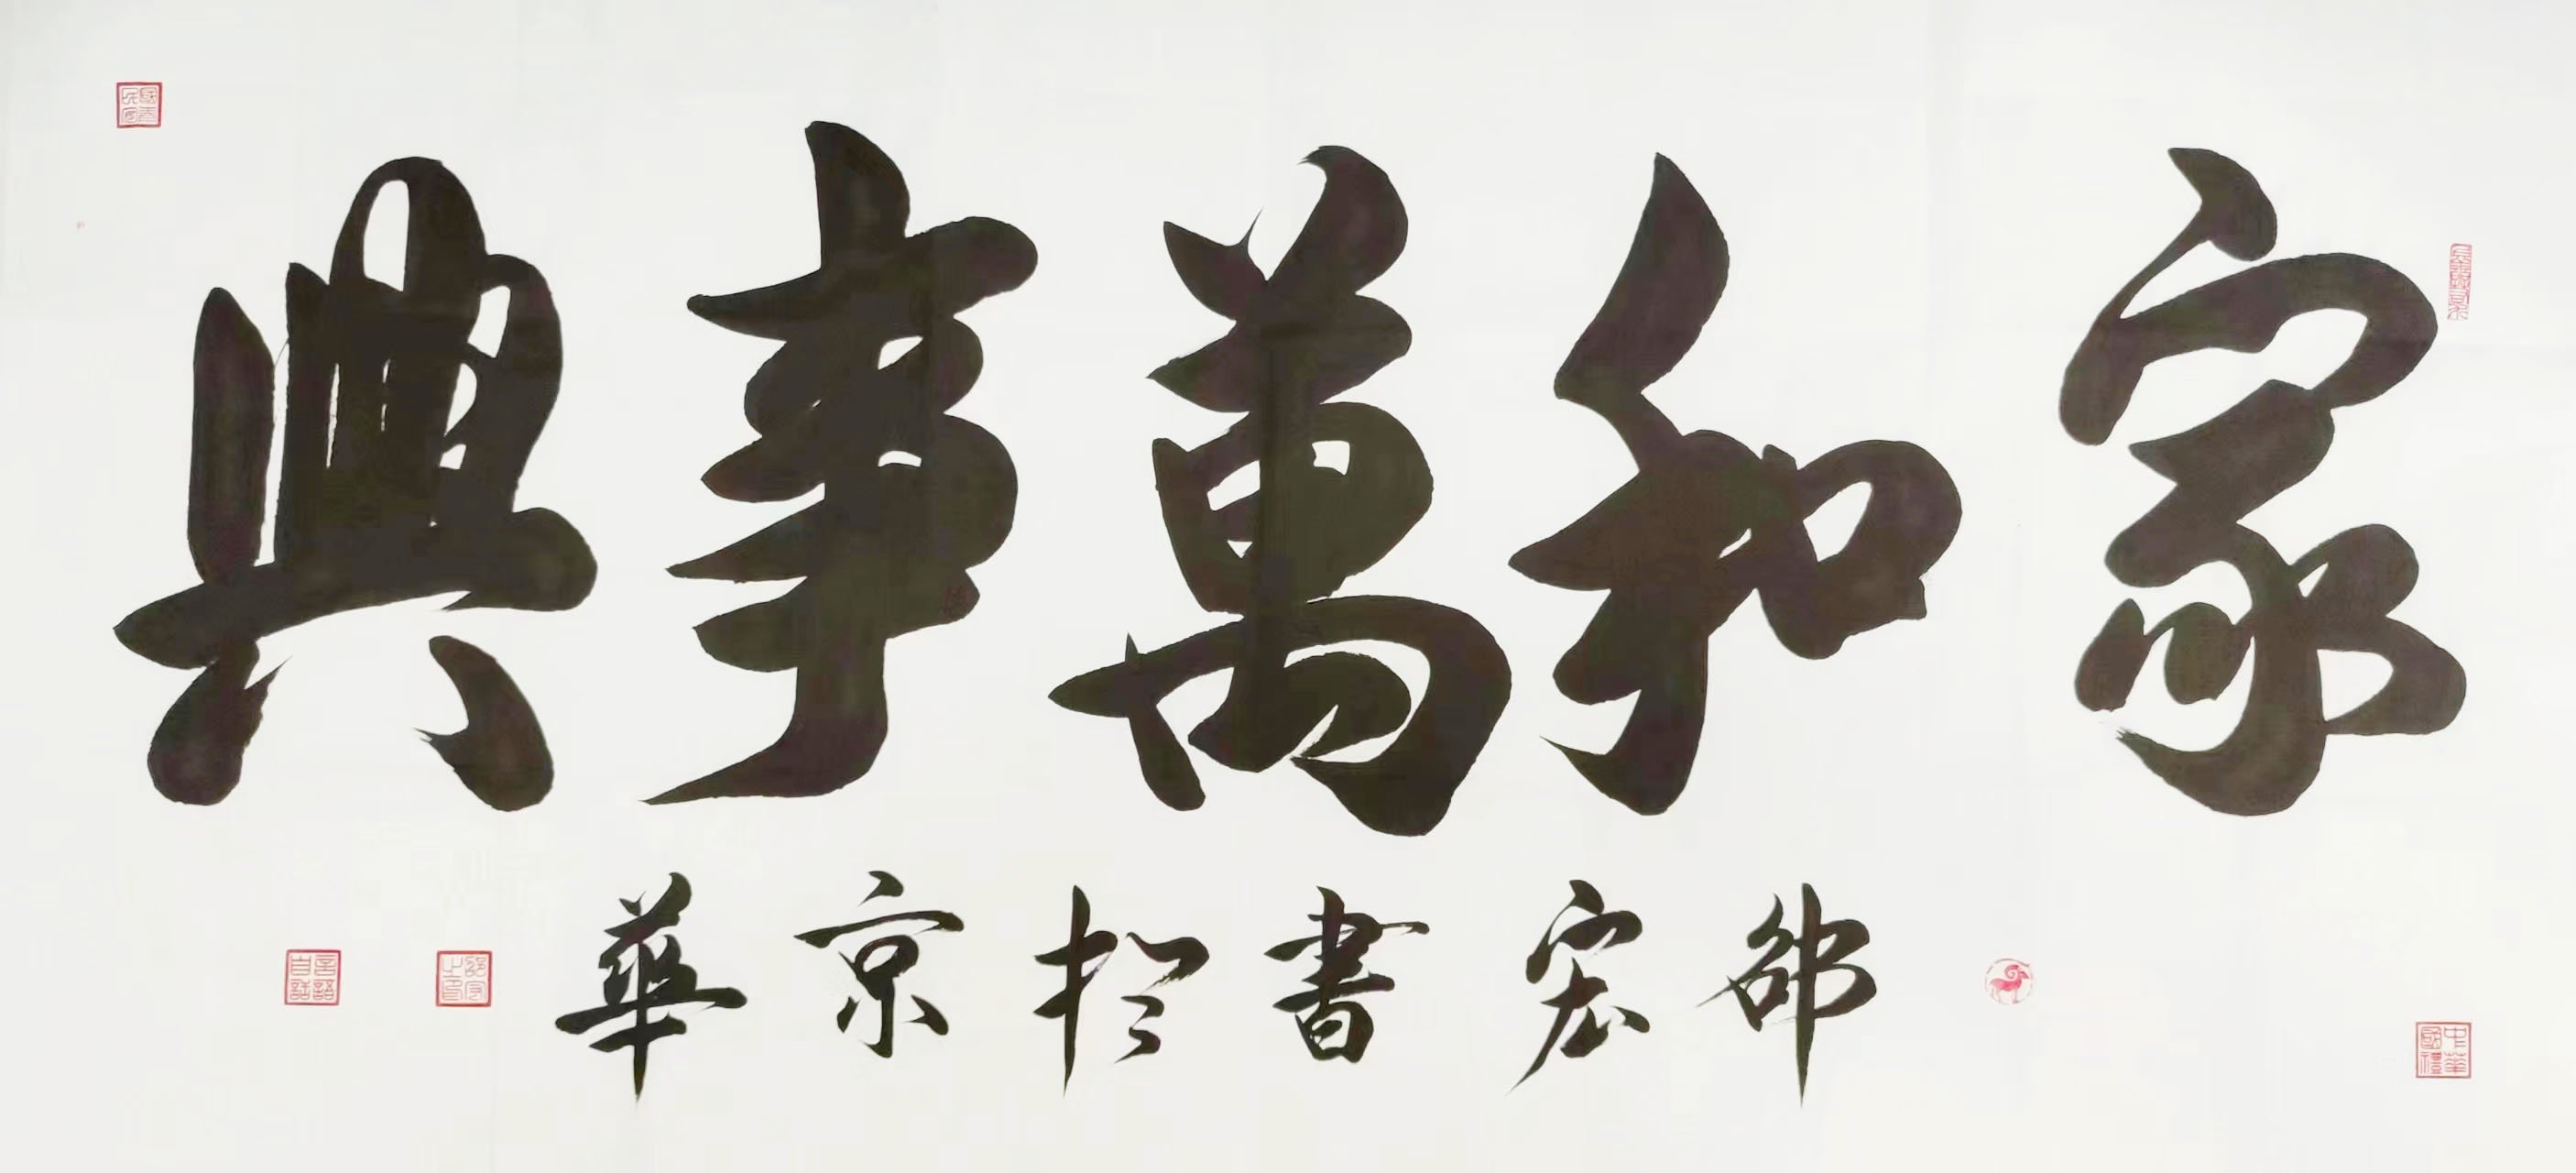 家和萬事興
邵宏書於京華
中華國禮